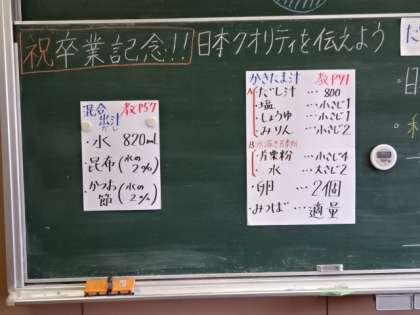 祝卒業記念!! 日本クオリティを伝えよう
混合 教P57
出汁
だし
・水 820mL
・昆布(水の2%)
・かつお節(水の2%)
かきたま汁 教P91
A だし汁 … 800
・塩 … 小さじ1
・しょうゆ … 小さじ1
・みりん … 小さじ2
B 水溶き片栗粉
・片栗粉 … 小さじ4
水 … 大さじ2
・卵 … 2個
・みつば … 適量
だ
・日